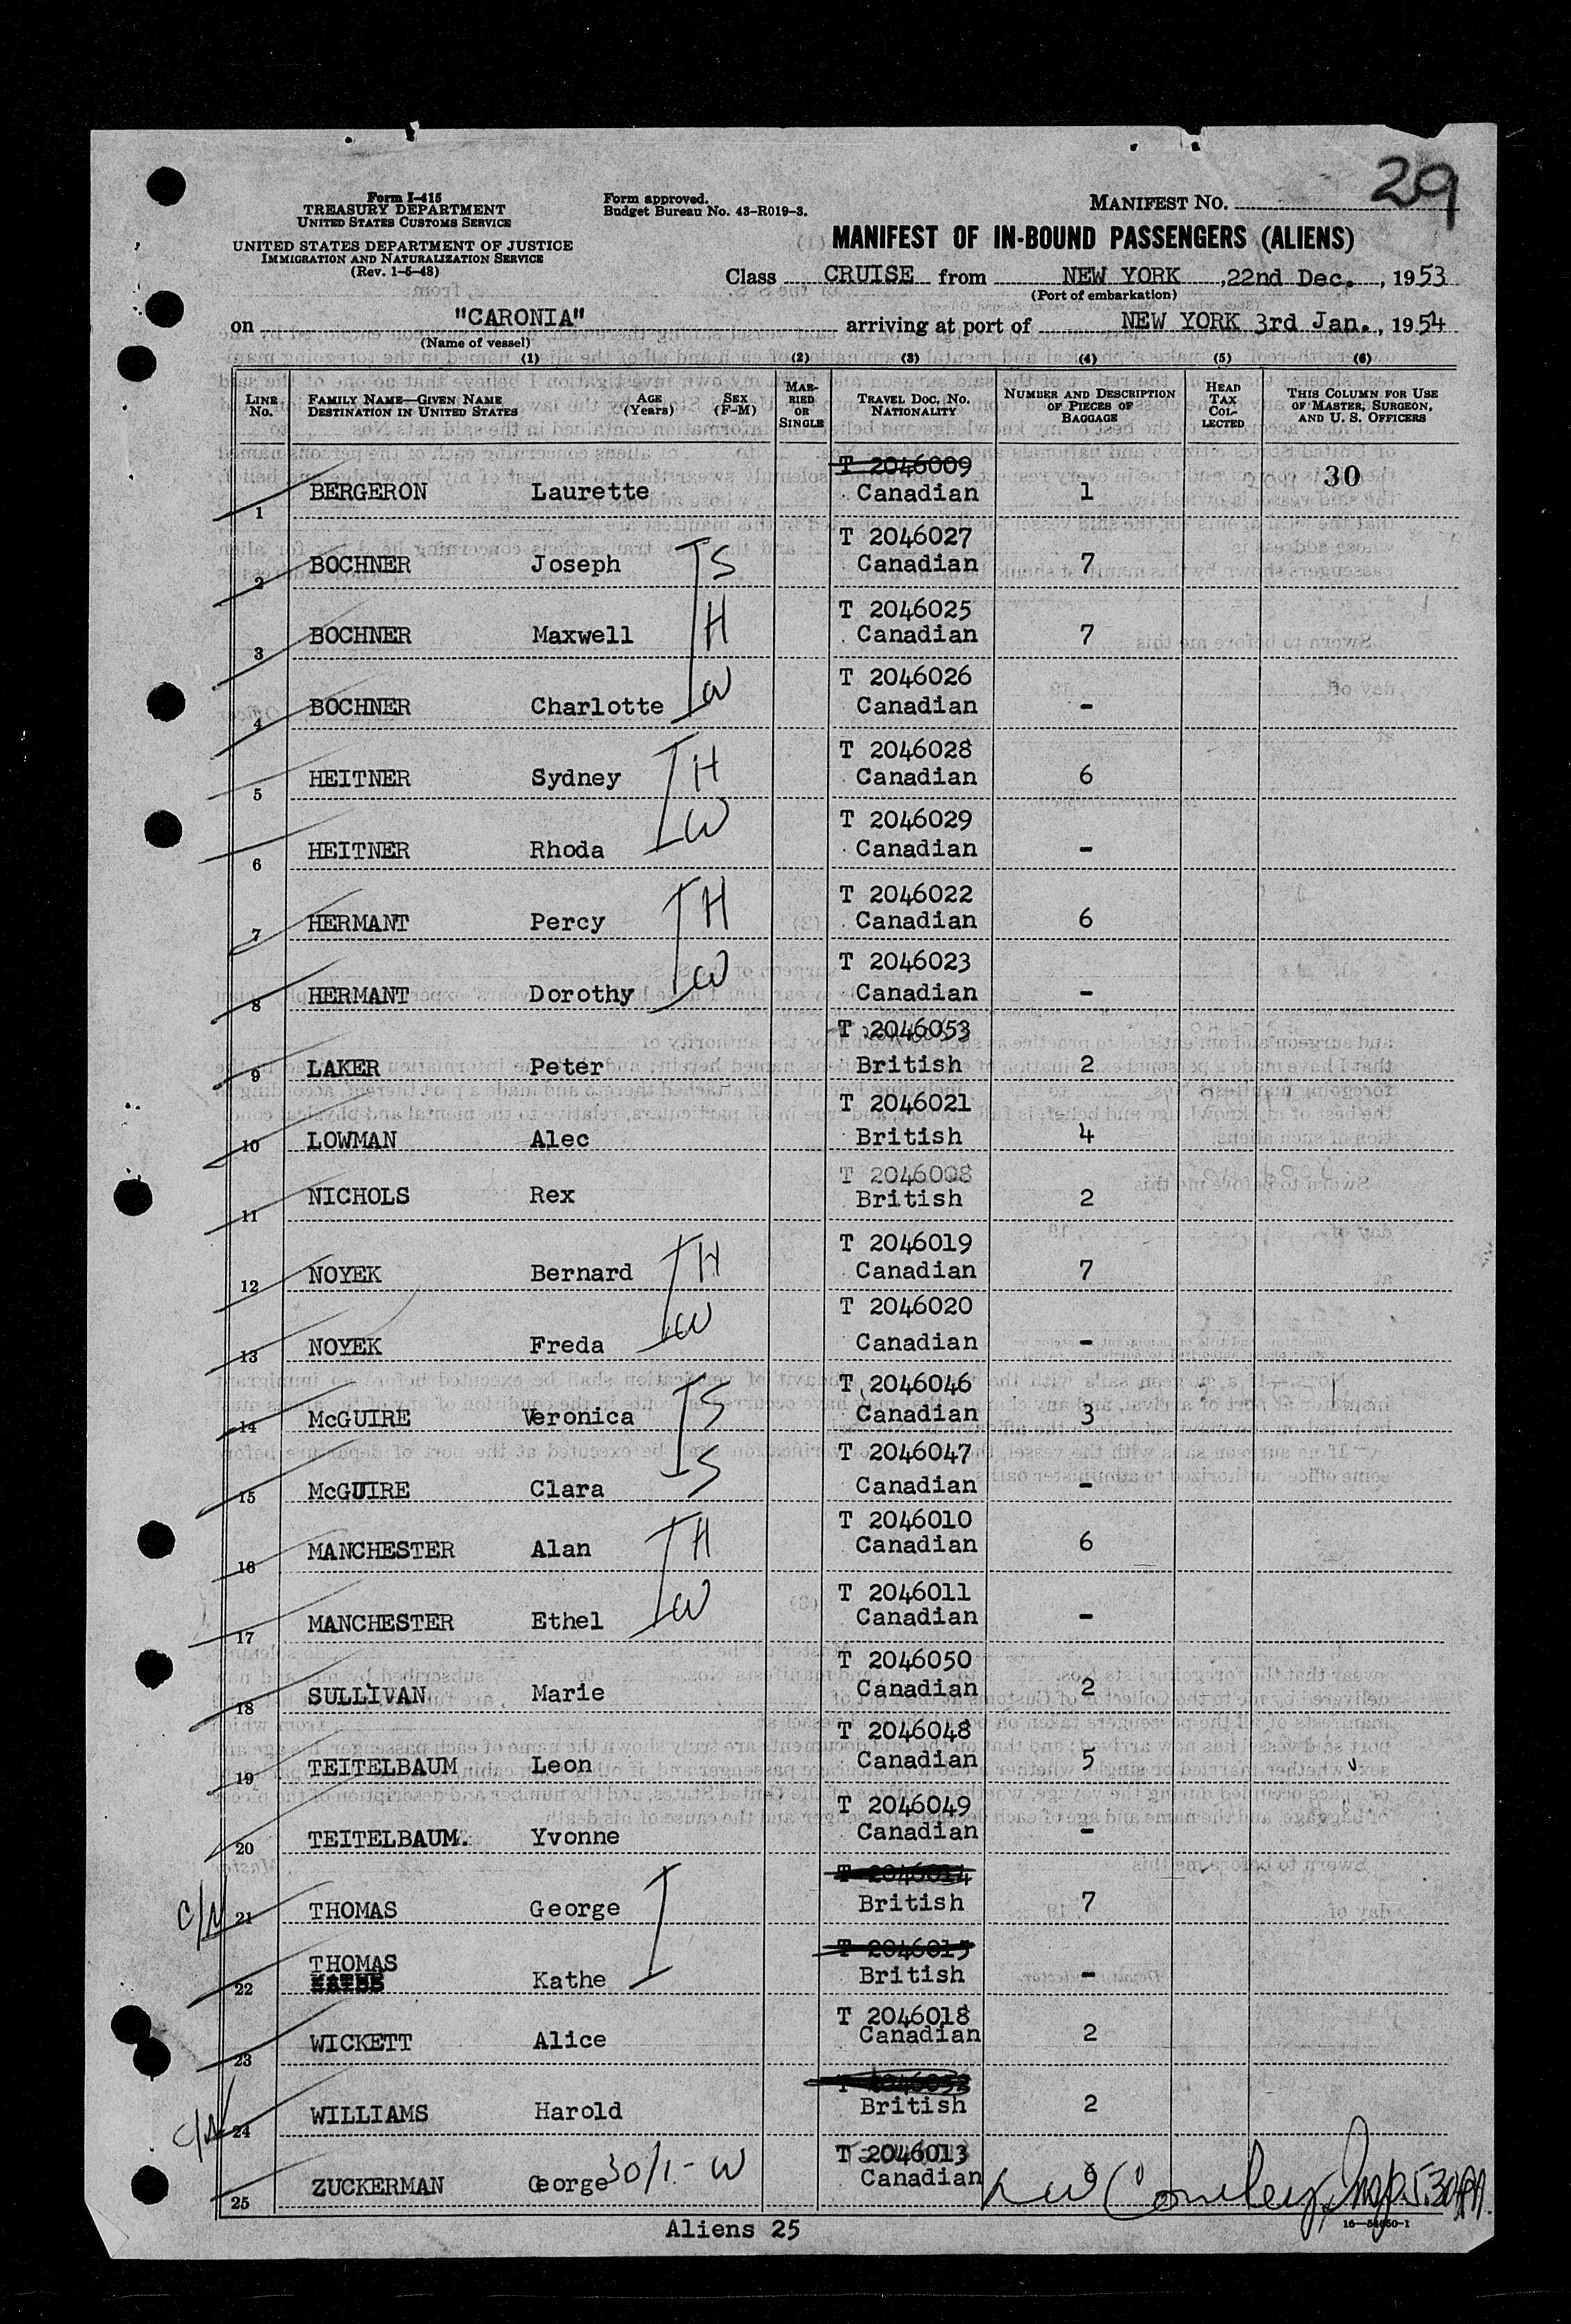 29
Form I-415
TREASURY DEPARTMENT
UNITED STATES CUSTOMS SERVICE
Form approved.
Budget Bureau No. 43-R019-3.
MANIFEST NO.
UNITED STATES DEPARTMENT OF JUSTICE
IMMIGRATION AND NATURALIZATION SERVICE
(Rev. 1-5-48)
MANIFEST OF IN-BOUND PASSENGERS (ALIENS)
Class CRUISE from NEW YORK, 22nd Dec., 1953
(Port of embarkation)
on "CARONIA" arriving at port of NEW YORK 3rd Jan., 1954
(Name of vessel)
(1) (2) (3) (4) (5) (6)
LINE No. FAMILY NAME—GIVEN NAME DESTINATION IN UNITED STATES AGE (Years) SEX (F-M) MARRIED OR SINGLE TRAVEL DOC. NO. NATIONALITY NUMBER AND DESCRIPTION OF PIECES OF BAGGAGE HEAD TAX COLLECTED THIS COLUMN FOR USE OF MASTER, SURGEON, AND U. S. OFFICERS
T 2046009 30
1 BERGERON Laurette Canadian 1
T 2046027
2 BOCHNER Joseph S Canadian 7
T 2046025
3 BOCHNER Maxwell H Canadian 7
T 2046026
4 BOCHNER Charlotte W Canadian -
T 2046028
5 HEITNER Sydney H Canadian 6
T 2046029
6 HEITNER Rhoda W Canadian -
T 2046022
7 HERMANT Percy H Canadian 6
T 2046023
8 HERMANT Dorothy W Canadian -
T 2046053
9 LAKER Peter British 2
T 2046021
10 LOWMAN Alec British 4
T 2046008
11 NICHOLS Rex British 2
T 2046019
12 NOYEK Bernard H Canadian 7
T 2046020
13 NOYEK Freda W Canadian -
T 2046046
14 McGUIRE Veronica S Canadian 3
T 2046047
15 McGUIRE Clara S Canadian -
T 2046010
16 MANCHESTER Alan H Canadian 6
T 2046011
17 MANCHESTER Ethel W Canadian -
T 2046050
18 SULLIVAN Marie Canadian 2
T 2046048
19 TEITELBAUM Leon Canadian 5
T 2046049
20 TEITELBAUM. Yvonne Canadian -
T 2046014
21 THOMAS George British 7
T 2046015
22 THOMAS Kathe British -
T 2046018
23 WICKETT Alice Canadian 2
T 2046052
24 WILLIAMS Harold British 2
T 2046013
25 ZUCKERMAN George 30/1-W Canadian
Aliens 25